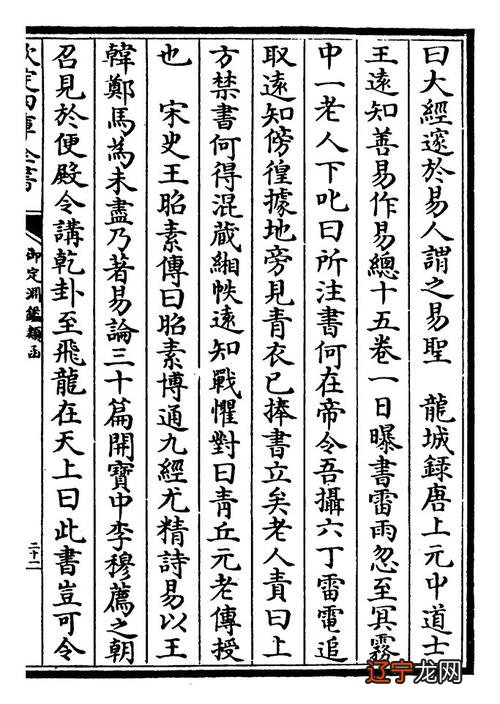 曰大經邃於易人謂之易聖　龍城録唐上元中道士
王遠知善易作易總十五卷一日曝書雷雨忽至冥霧
中一老人下叱曰所注書何在帝令吾攝六丁雷電追
取遠知傍徨據地旁見青衣已捧書立矣老人責曰上
方禁書何得混藏緗帙遠知戰懼對曰青丘元老傳授
也　宋史王昭素傳曰昭素博通九經尤精詩易以王
韓鄭馬為未盡乃著易論三十篇開寶中李穆薦之朝
召見於便殿令講乾卦至飛龍在天上曰此書豈可令
欽定四庫全書
御定淵鑑類函
二十二
辽宁龙网